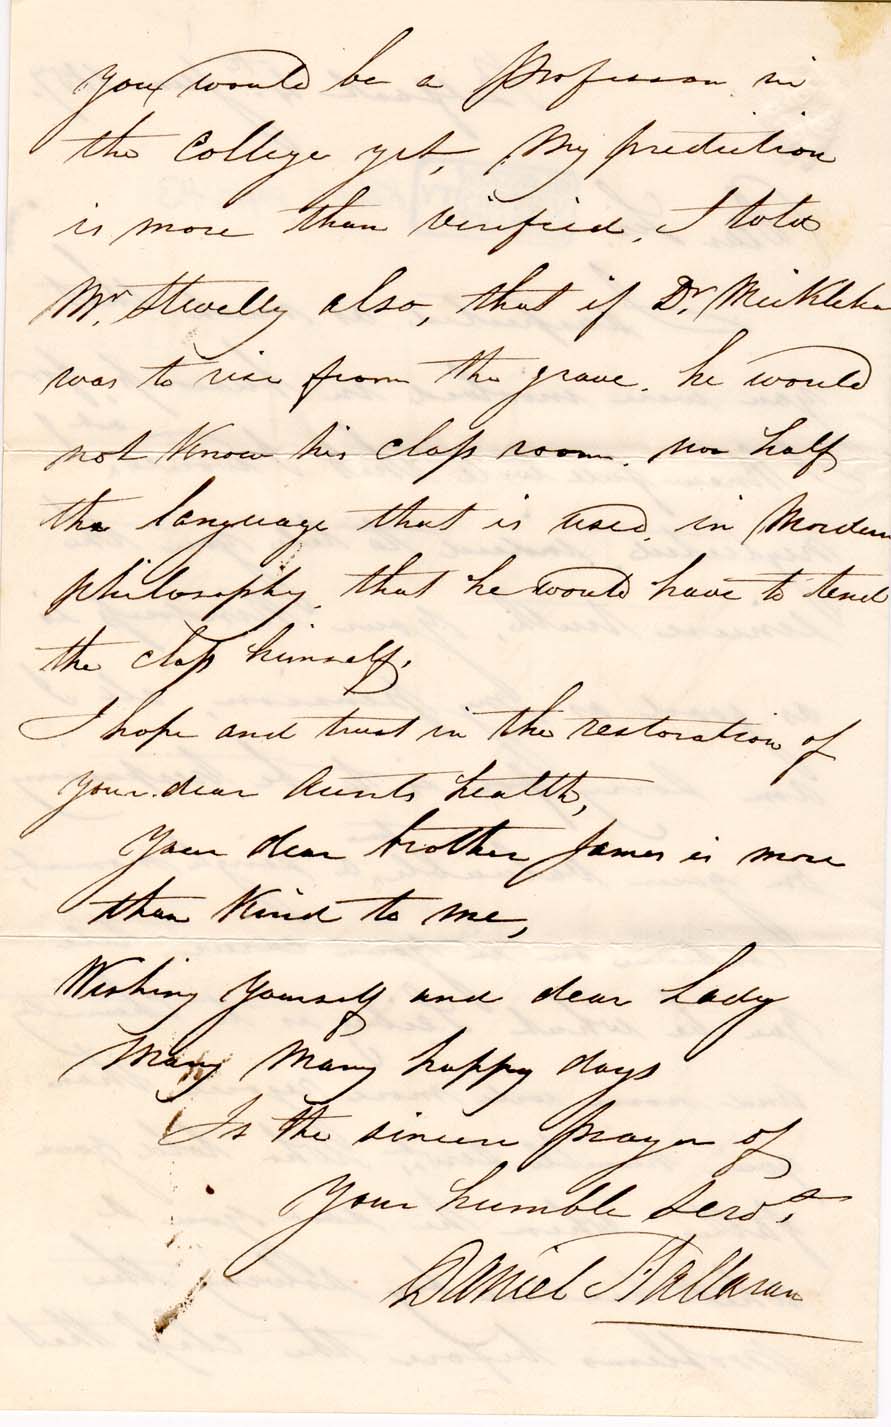 you would be a professor in
the college yet, My prediction
is more than virified, I told
Mr. Stevelly also, that if Dr. Meikleha
was to rise from the grave. he would
not Know his class room. nor half
the language that is used, in Mordern
philosophy, that he would have to tend
the class himself.
I hope and trust in the restoration of
your dear Aunts health,
Your dear brother James is more
than Kind to me,
Wishing Yourself and dear Lady
Many Many happy days
Is the sincere prayer of
Your humble Servt,
Daniel